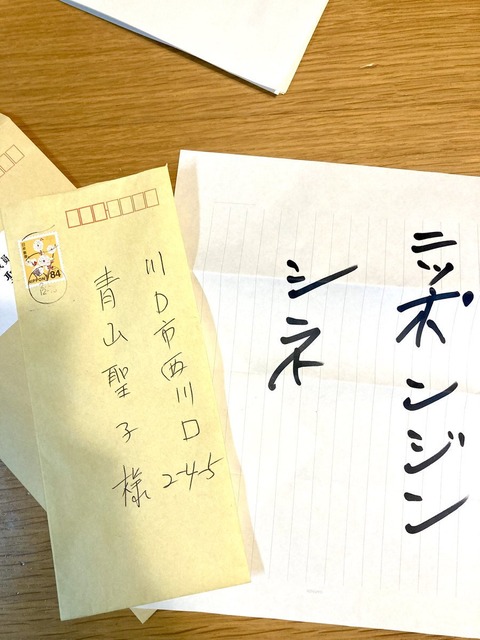 川口市西川口
2-4-5
青山聖子様
ニッポンジン
シネ
84